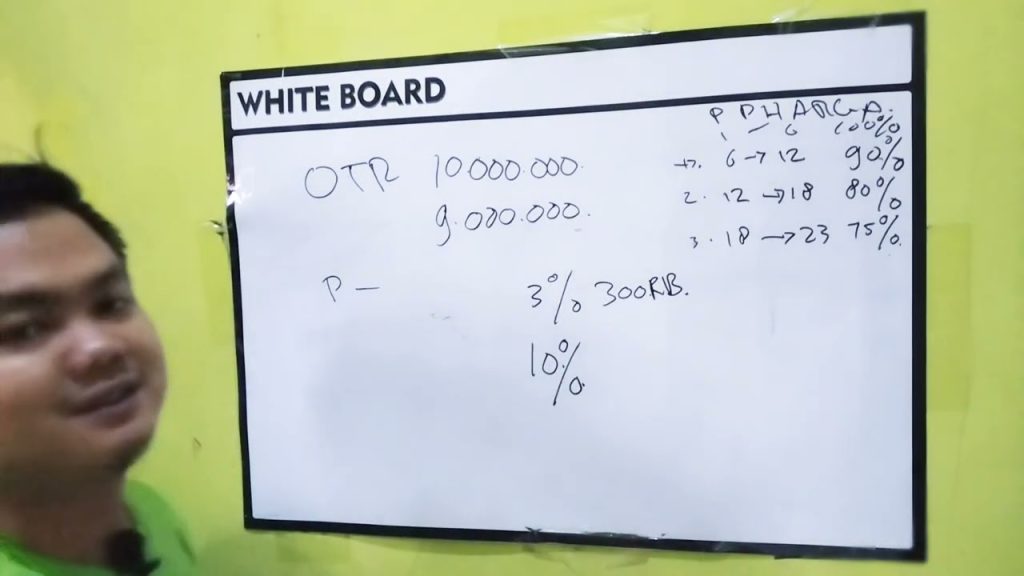 WHITE BOARD
OTR 10.000.000.
9.000.000.
P –
3% 300RB.
10%
P P HARGA.
1 – 6 100%
6 → 12 90%
2. 12 → 18 80%
3. 18 → 23 75%